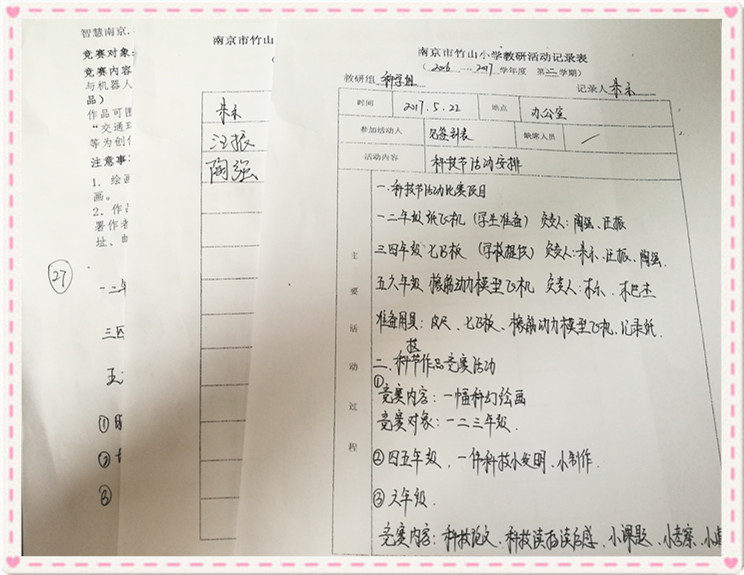 智慧南京.
竞赛对象:
竞赛内容
与机器人
品）
作品可围
“交通环
等为创作
注意事
1. 绘画
画。
2. 作品
署作者
址、邮
27
一二年
三四
五
①
②
③
南京市竹山
陶强
汪振
南京市竹山小学教研活动记录表
（2016——2017学年度 第二学期）
教研组 科学组
记录人
时间 2017.5.22 地点 办公室
参加活动人 见签到表 缺席人员 /
活动内容 科技节活动安排
主要活动过程
一.科技节活动比赛项目
一二年级 纸飞机（学生准备）负责人:陶强、汪振
三四年级 七巧板（学校提供）负责人: 汪振、陶强.
五六年级 橡筋动力模型飞机 负责人:
准备用具: 皮尺、七巧板、橡筋动力模型飞机、记录纸
二.科技节作品竞赛活动
①
竞赛内容: 一幅科幻绘画
竞赛对象: 一二三年级.
②四五年级. 一件科技小发明、小制作.
③六年级.
竞赛内容: 科技论文、科技读书读后感、小课题、小考察、小